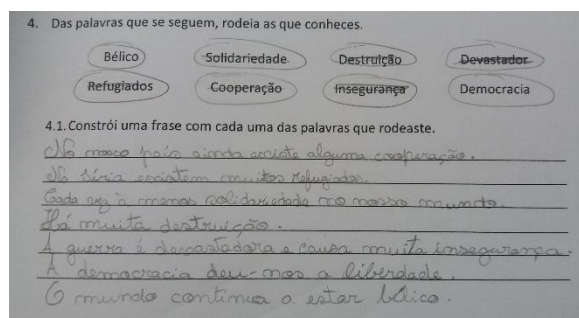 4. Das palavras que se seguem, rodeia as que conheces.
Bélico Solidariedade Destruição Devastador
Refugiados Cooperação Insegurança Democracia
4.1. Constrói uma frase com cada uma das palavras que rodeaste.
No nosso país ainda existe alguma cooperação.
Na Síria existem muitos refugiados.
Cada vez à menos solidariedade no nosso mundo.
Há muita destruição.
A guerra é devastadora e causa muita insegurança.
A democracia deu-nos a liberdade.
O mundo continua a estar bélico.